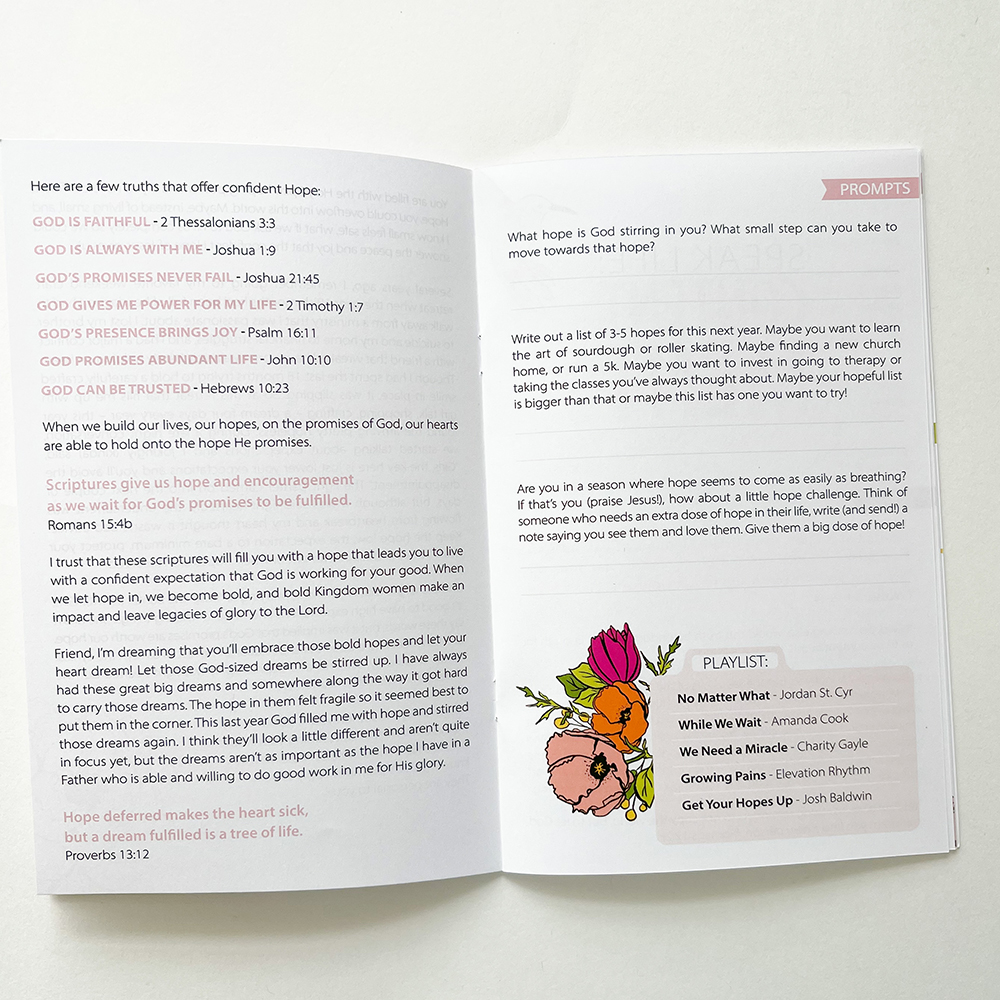 Here are a few truths that offer confident Hope:
GOD IS FAITHFUL - 2 Thessalonians 3:3
GOD IS ALWAYS WITH ME - Joshua 1:9
GOD'S PROMISES NEVER FAIL - Joshua 21:45
GOD GIVES ME POWER FOR MY LIFE - 2 Timothy 1:7
GOD'S PRESENCE BRINGS JOY - Psalm 16:11
GOD PROMISES ABUNDANT LIFE - John 10:10
GOD CAN BE TRUSTED - Hebrews 10:23
When we build our lives, our hopes, on the promises of God, our hearts
are able to hold onto the hope He promises.
Scriptures give us hope and encouragement
as we wait for God's promises to be fulfilled.
Romans 15:4b
I trust that these scriptures will fill you with a hope that leads you to live
with a confident expectation that God is working for your good. When
we let hope in, we become bold, and bold Kingdom women make an
impact and leave legacies of glory to the Lord.
Friend, I'm dreaming that you'll embrace those bold hopes and let your
heart dream! Let those God-sized dreams be stirred up. I have always
had these great big dreams and somewhere along the way it got hard
to carry those dreams. The hope in them felt fragile so it seemed best to
put them in the corner. This last year God filled me with hope and stirred
those dreams again. I think they'll look a little different and aren't quite
in focus yet, but the dreams aren't as important as the hope I have in a
Father who is able and willing to do good work in me for His glory.
Hope deferred makes the heart sick,
but a dream fulfilled is a tree of life.
Proverbs 13:12
PROMPTS
What hope is God stirring in you? What small step can you take to
move towards that hope?
Write out a list of 3-5 hopes for this next year. Maybe you want to learn
the art of sourdough or roller skating. Maybe finding a new church
home, or run a 5k. Maybe you want to invest in going to therapy or
taking the classes you've always thought about. Maybe your hopeful list
is bigger than that or maybe this list has one you want to try!
Are you in a season where hope seems to come as easily as breathing?
If that's you (praise Jesus!), how about a little hope challenge. Think of
someone who needs an extra dose of hope in their life, write (and send!) a
note saying you see them and love them. Give them a big dose of hope!
PLAYLIST:
No Matter What - Jordan St. Cyr
While We Wait - Amanda Cook
We Need a Miracle - Charity Gayle
Growing Pains - Elevation Rhythm
Get Your Hopes Up - Josh Baldwin